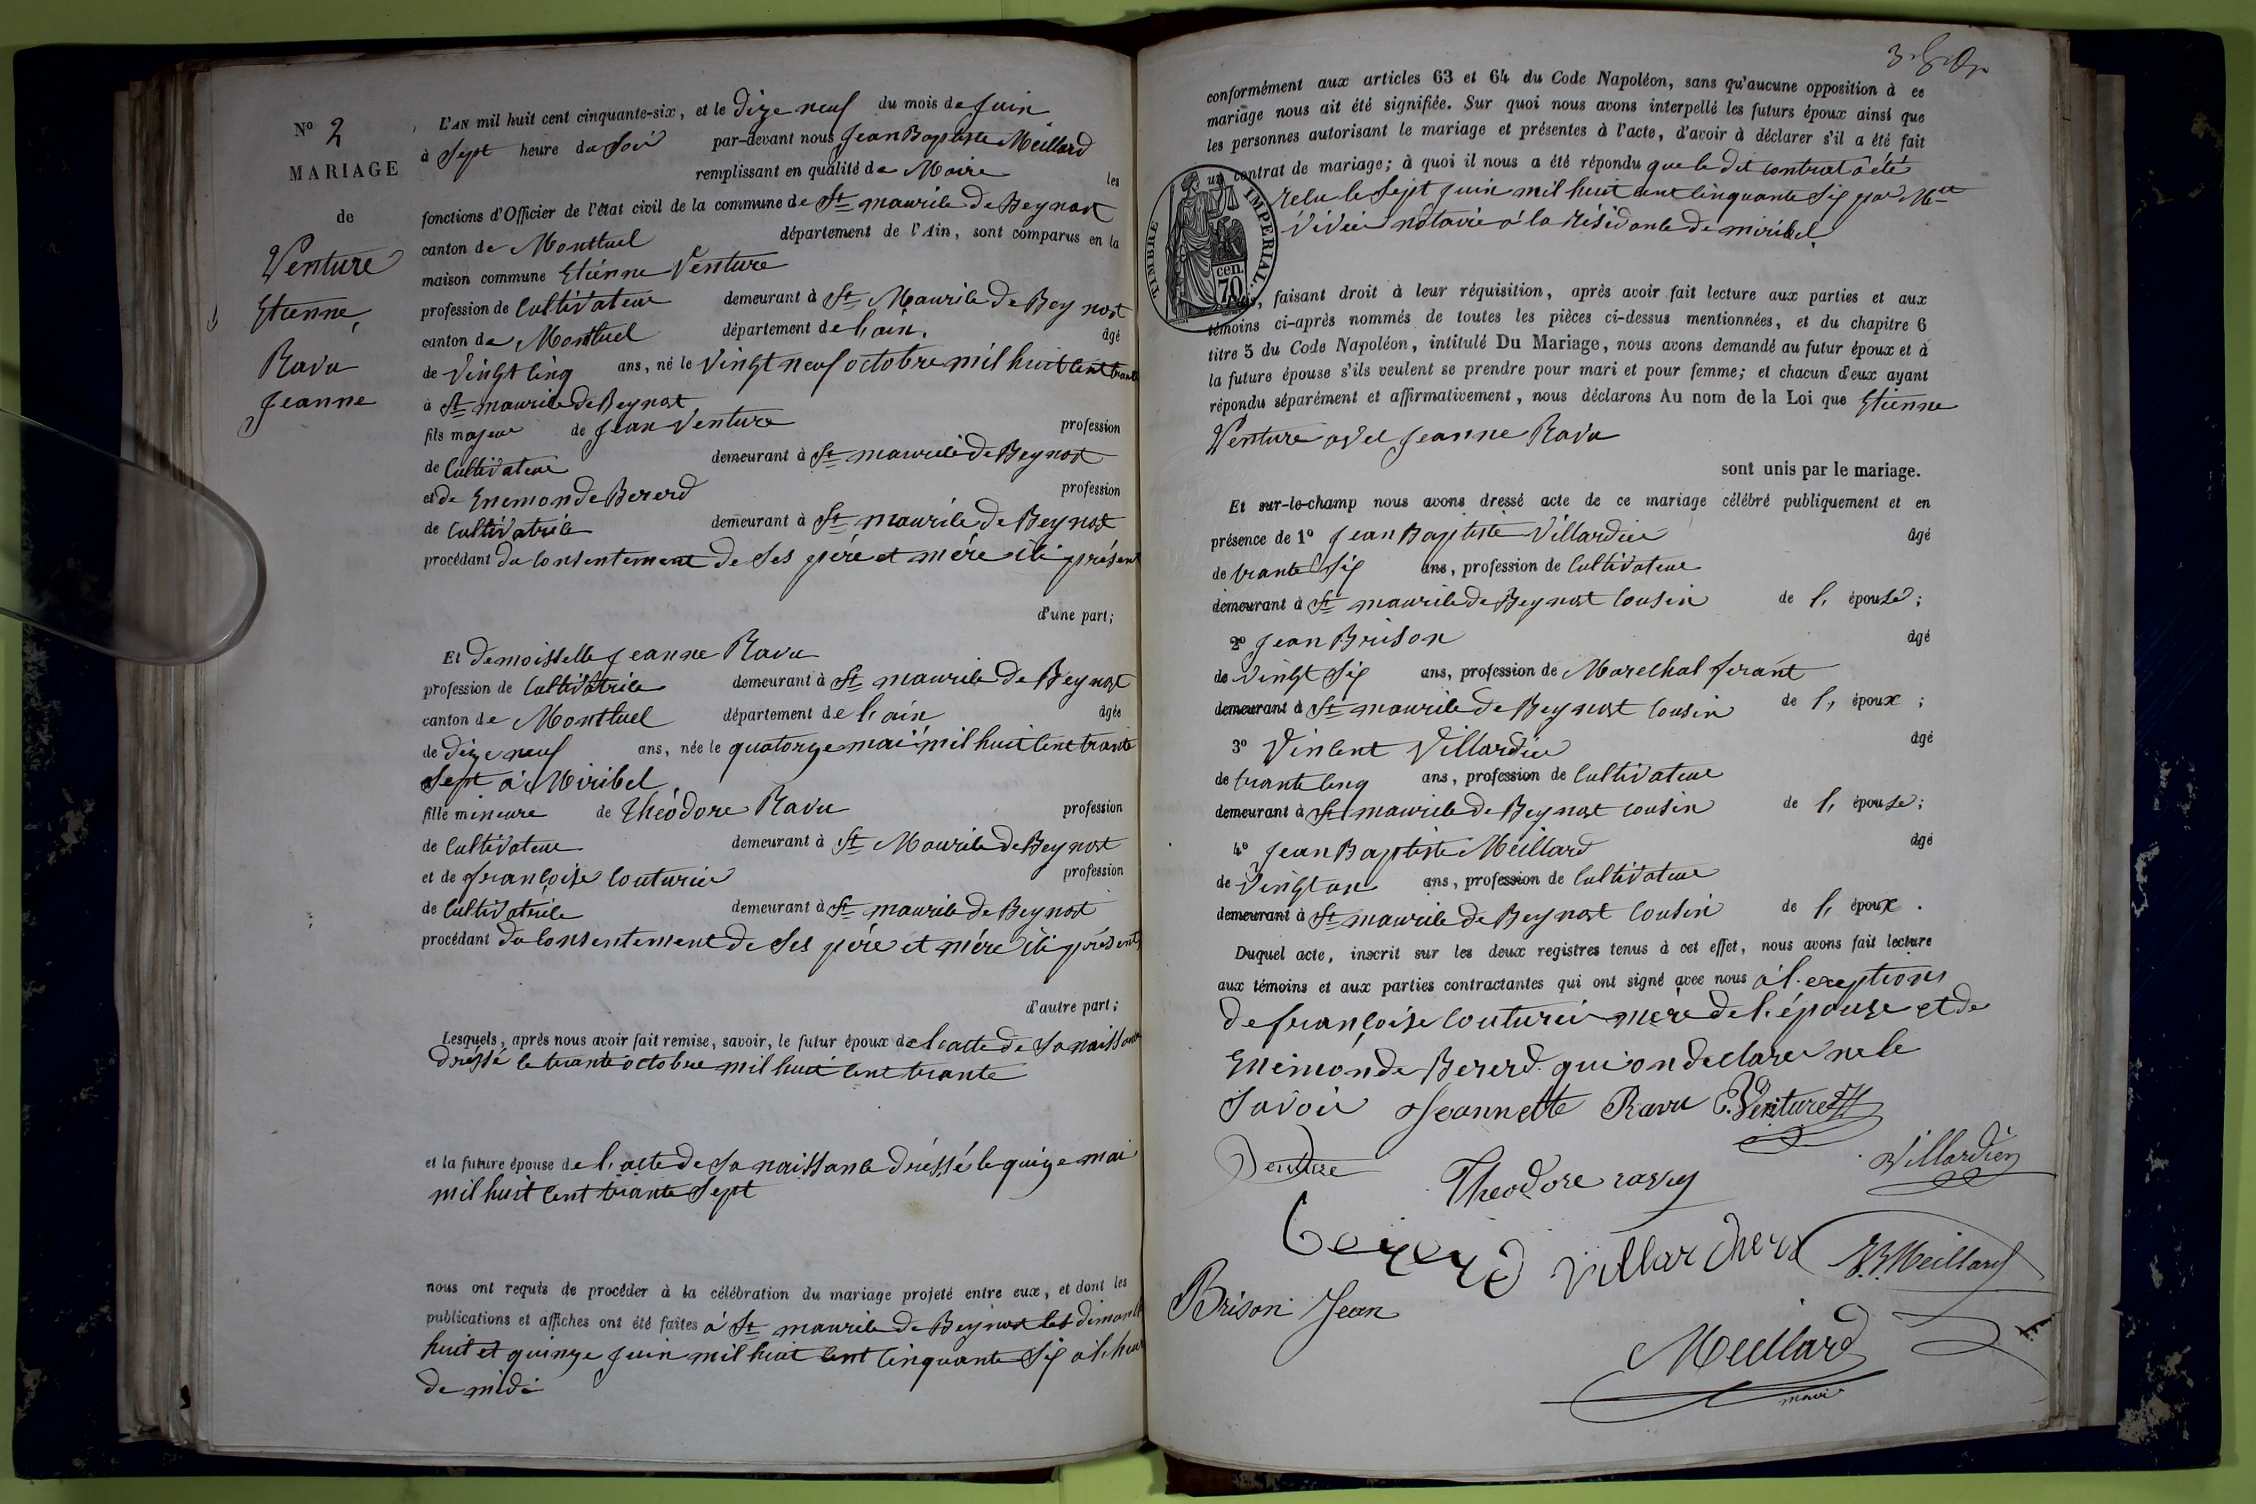 No 2
MARIAGE
de
Venture
Etienne
Ravu
Jeanne
L'AN mil huit cent cinquante-six, et le dize neuf du mois de Juin
à Sept heure du Soir par-devant nous Jean Baptiste Meillard
remplissant en qualité de Maire les
fonctions d'Officier de l'état civil de la commune de St maurice de Beynost
canton de Montluel département de l'Ain, sont comparus en la
maison commune Etiénne Venture
profession de Cultivateur demeurant à St Maurice de Beynost
canton de Montluel département de l'ain, âgé
de Vingt cinq ans, né le Vingt neuf octobre mil huit cent trante
à St maurice de Beynost
fils majeur de Jean Venture profession
de Cultivateur demeurant à St maurice de Beynost
et de Enemonde Bererd profession
de Cultivatrice demeurant à St maurice de Beynost
procédant du consentement de ses pére et mére ici présent
d'une part;
Et demoisselle Jeanne Ravu
profession de Cultivatrice demeurant à St maurice de Beynost
canton de Montluel département de l'ain âgée
de dize neuf ans, née le quatorze mai mil huit cent trante
Sept à Miribel
fille mineure de Théodore Ravu profession
de Cultivateur demeurant à St Maurice de Beynost
et de françoise Couturier profession
de Cultivatrice demeurant à St maurice de Beynost
procédant du consentement de ses pére et mére ici présent
d'autre part;
Lesquels, après nous avoir fait remise, savoir, le futur époux de l'acte de sa naissance
dréssé le trante octobre mil huit cent trante
et la future épouse de l'acte de sa naissance dréssé le quize mai
mil huit cent trante Sept
nous ont requis de procéder à la célébration du mariage projeté entre eux, et dont les
publications et affiches ont été faites à St maurice de Beynost les dimanche
huit et quinze juin mil huit cent cinquante Six à l'heure
de midi
conformément aux articles 63 et 64 du Code Napoléon, sans qu'aucune opposition à ce
mariage nous ait été signifiée. Sur quoi nous avons interpellé les futurs époux ainsi que
les personnes autorisant le mariage et présentes à l'acte, d'avoir à déclarer s'il a été fait
un contrat de mariage; à quoi il nous a été répondu que le dit contrat a été
relu le Sept Juin mil huit cent cinquante Six par Me
notaire à la résidante de miribel
TIMBRE IMPERIAL.
70 cen.
faisant droit à leur réquisition, après avoir fait lecture aux parties et aux
témoins ci-après nommés de toutes les pièces ci-dessus mentionnées, et du chapitre 6
titre 5 du Code Napoléon, intitulé Du Mariage, nous avons demandé au futur époux et à
la future épouse s'ils veulent se prendre pour mari et pour femme; et chacun d'eux ayant
répondu séparément et affirmativement, nous déclarons Au nom de la Loi que Etienne
Venture avec Jeanne Ravu
sont unis par le mariage.
Et sur-le-champ nous avons dressé acte de ce mariage célébré publiquement et en
présence de 1º Jean Baptiste Villardier âgé
de trante Six ans, profession de Cultivateur
demeurant à St maurice de Beynost cousin de l, épouse;
2º Jean Brison âgé
de Vingt Six ans, profession de Marechal ferant
demeurant à St maurice de Beynost cousin de l, époux;
3º Vincent Villardier âgé
de trante cinq ans, profession de Cultivateur
demeurant à St maurice de Beynost cousin de l, épouse;
4º Jean Baptiste Meillard âgé
de Vingt an ans, profession de Cultivateur
demeurant à St maurice de Beynost cousin de l, époux.
Duquel acte, inscrit sur les deux registres tenus à cet effet, nous avons fait lecture
aux témoins et aux parties contractantes qui ont signé avec nous à l'exeptions
de françoise Couturier mere de l'épouse et de
Enémonde Bererd qui on declarer ne le
Savoir Jeannette Ravu E. Venture
Venture Theodore Villardier
J.B. Meillard
Brison Jean
Meillard
maire